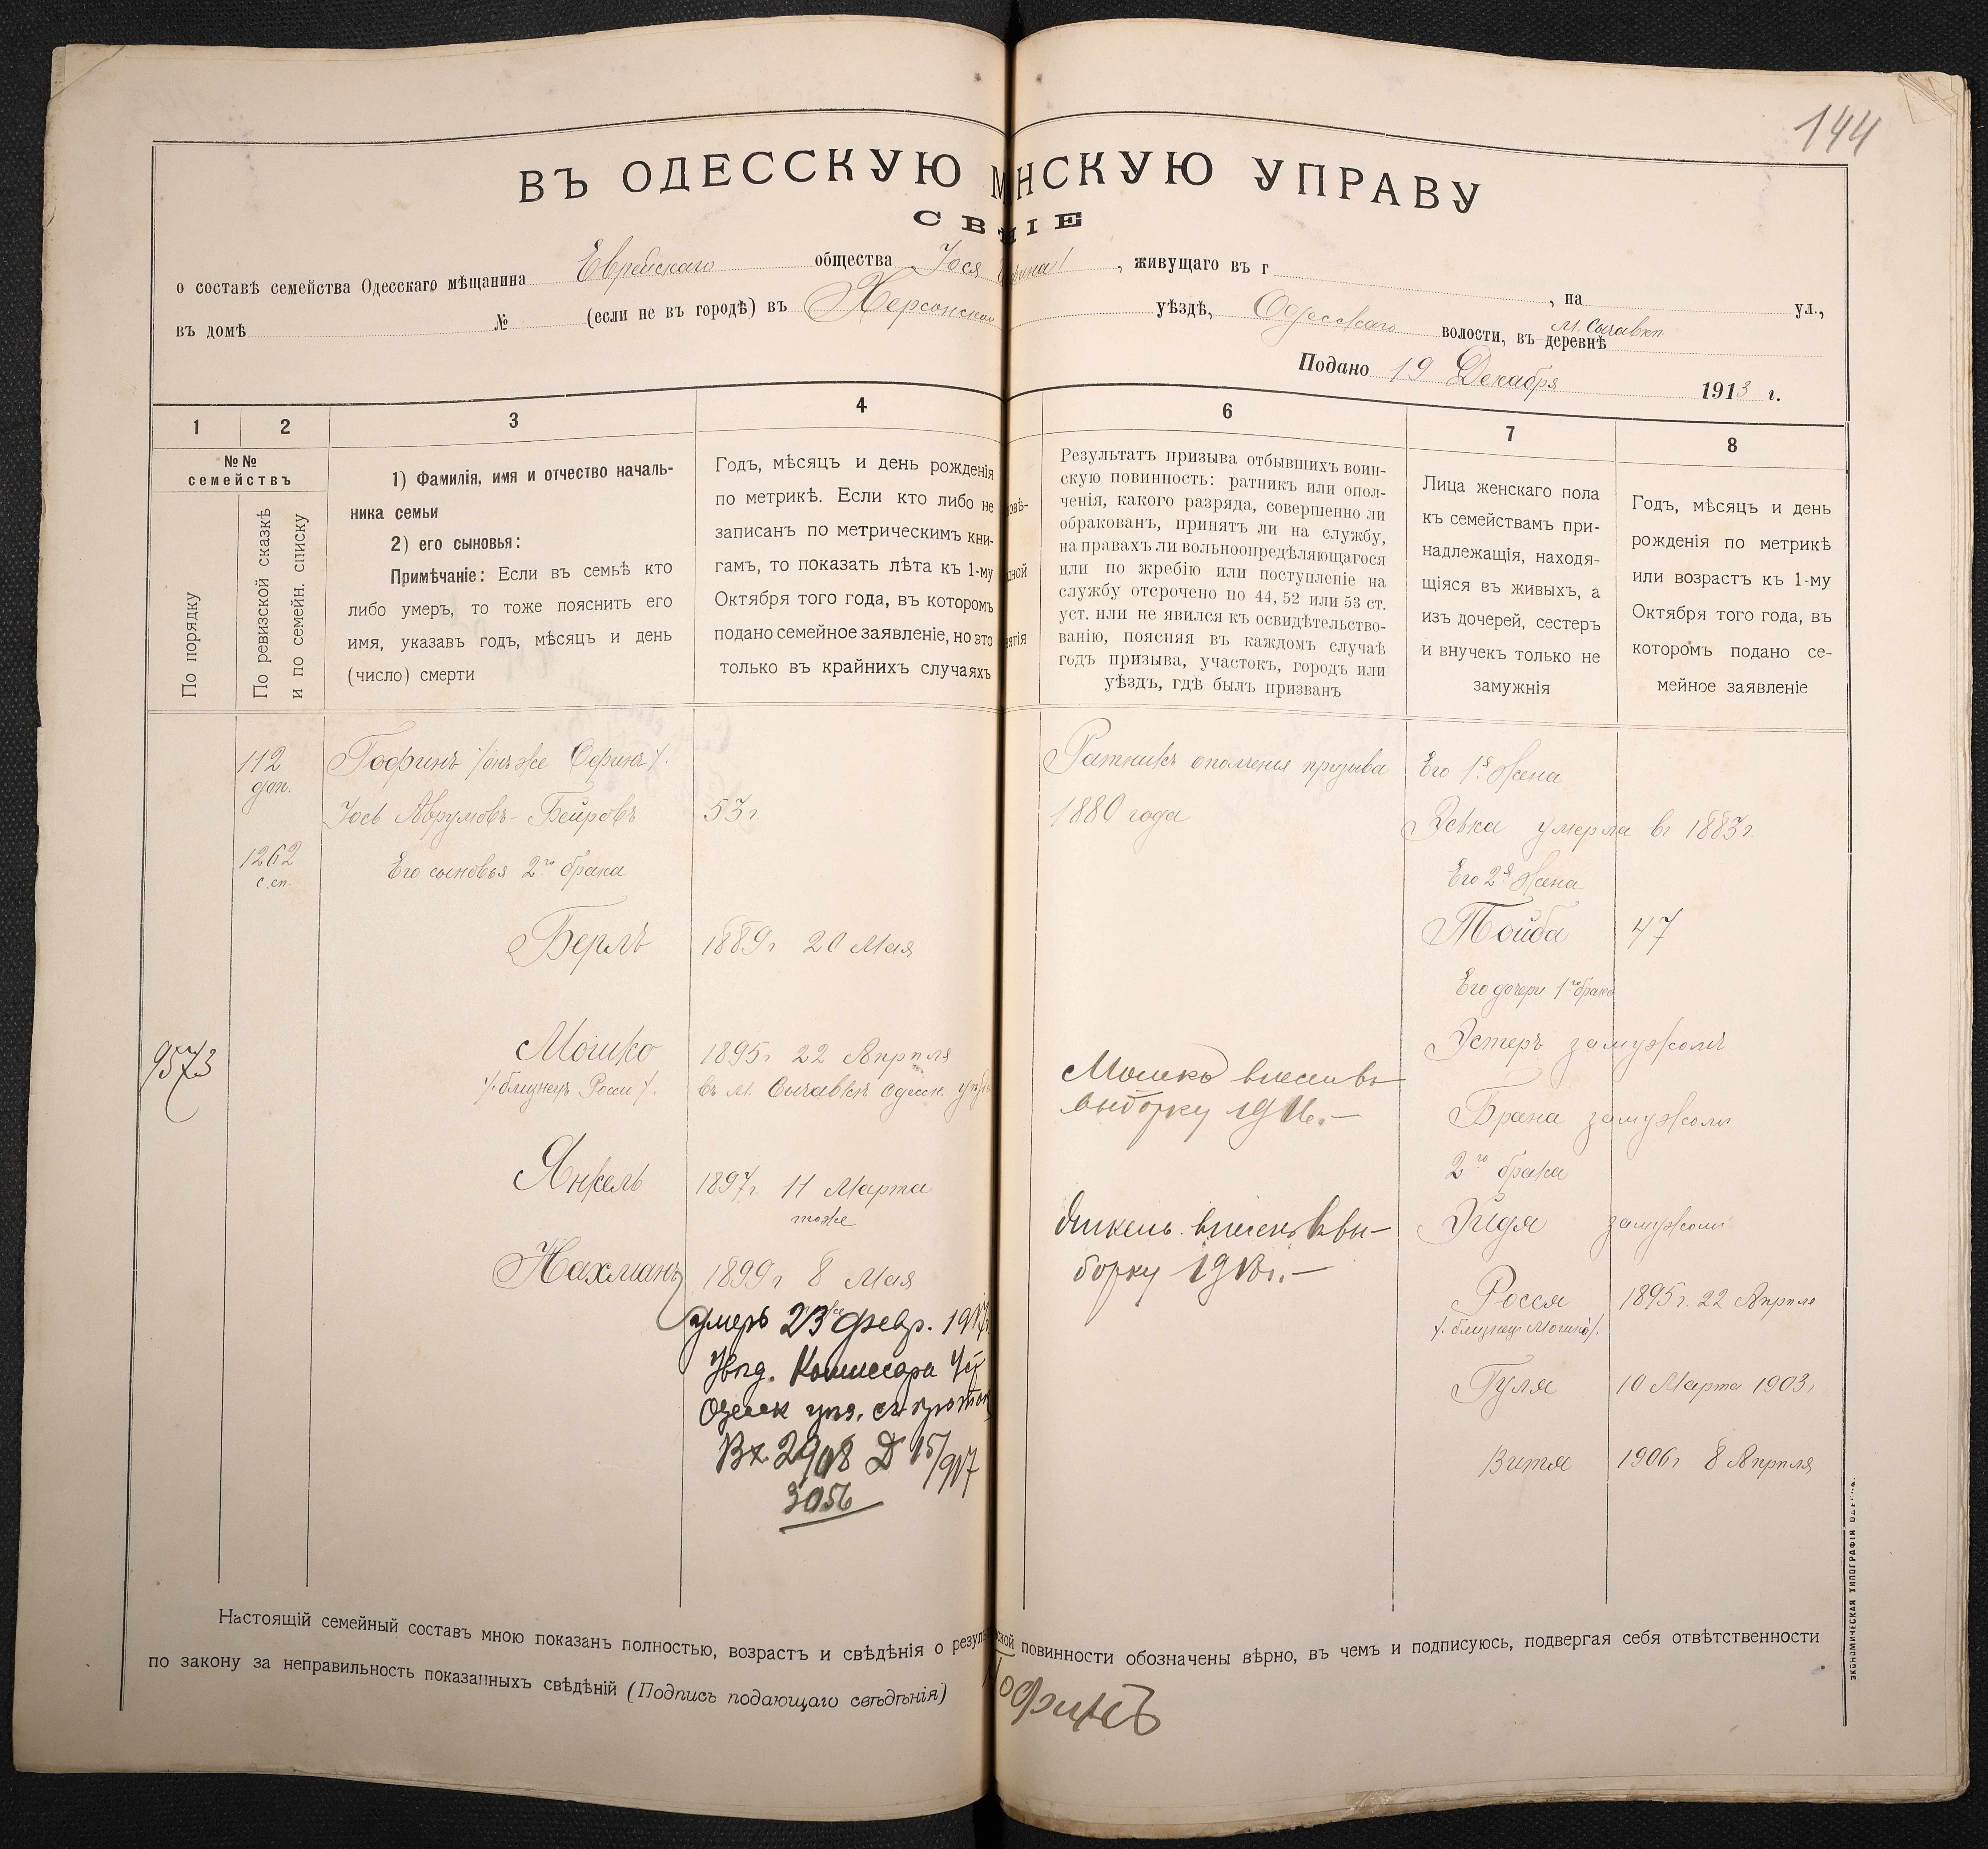 144
ВЪ ОДЕССКУЮ М НСКУЮ УПРАВУ
СВ ІЕ
о составѣ семейства Одесскаго мѣщанина Еврейскаго общества Іося фина, живущаго въ г , на ул.,
въ домѣ № (если не въ городѣ) въ Херсонской уѣздѣ, Одесскаго волости, въ деревнѣ м. Сычавкѣ
Подано 19 Декабря 1913 г.
1 2 3 4 6 7 8
№№ семействъ
По порядку
По ревизской сказкѣ
и по семейн. списку
1) Фамилія, имя и отчество началь-
ника семьи
2) его сыновья:
Примѣчаніе: Если въ семьѣ кто
либо умеръ, то тоже пояснить его
имя, указавъ годъ, мѣсяцъ и день
(число) смерти
Годъ, мѣсяцъ и день рожденія
по метрикѣ. Если кто либо не
записанъ по метрическимъ кни-
гамъ, то показать лѣта къ 1-му
Октября того года, въ которомъ
подано семейное заявленіе, но это
только въ крайнихъ случаяхъ
Результатъ призыва отбывшихъ воин-
скую повинность: ратникъ или опол-
ченія, какого разряда, совершенно ли
обракованъ, принятъ ли на службу,
на правахъ ли вольноопредѣляющагося
или по жребію или поступленіе на
службу отсрочено по 44, 52 или 53 ст.
уст. или не явился къ освидѣтельство-
ванію, поясняя въ каждомъ случаѣ
годъ призыва, участокъ, городъ или
уѣздъ, гдѣ былъ призванъ
Лица женскаго пола
къ семействамъ при-
надлежащія, находя-
щіяся въ живыхъ, а
изъ дочерей, сестеръ
и внучекъ только не
замужнія
Годъ, мѣсяцъ и день
рожденія по метрикѣ
или возрастъ къ 1-му
Октября того года, въ
которомъ подано се-
мейное заявленіе
112 доп.
1262 с.сп.
9573
Гофинъ /онъ же Офинъ/.
Іось Аврумовъ-Бейровъ 53 г
Его сыновья 2го брака
Берлъ 1889 г 20 Мая
Мошко 1895 г 22 Апрѣля
/.близнецъ Росси/. въ м. Сычавкѣ Одесск. уѣз
Янкель 1897 г. 11 Марта
тоже
Нахманъ 1899 г 8 Мая
умеръ 23 февр. 1917
увѣд. Комиссара
Одесск уѣз.
Вх. 2908 Д 15/917
3056
Ратникъ ополченія призыва
1880 года
Мошко внесенъ въ
выборку 1916.-
Янкель внесенъ въ вы-
борку 1918г.-
Его 1я Жена
Эська умерла въ 1883 г.
Его 2я Жена
Тойба 47
Его дочери 1го брака
Эстеръ замужемъ
Брана замужемъ
2го брака
Эйдя замужемъ
Росся 1895 г. 22 Апрѣля
/.близнецъ Мошко/.
Гуля 10 Марта 1903 г
Витя 1906 г 8 Апрѣля
Настоящій семейный составъ мною показанъ полностью, возрастъ и свѣдѣнія о резуль ской повинности обозначены вѣрно, въ чемъ и подписуюсь, подвергая себя отвѣтственности
по закону за неправильность показанныхъ свѣдѣній (Подпись подающаго свѣдѣнія)
Гофинъ
ЭКОНОМИЧЕСКАЯ ТИПОГРАФІЯ